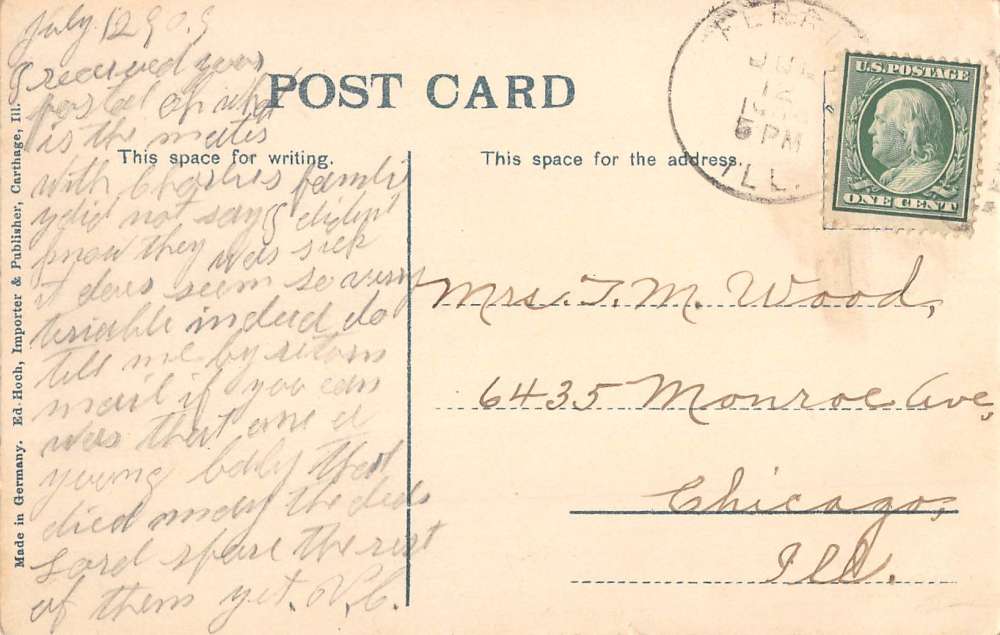 July 12 909
I received your
postal of what
is the mater
with Charlies famli
y did not say I didént
know they was sick
it does seem so very
teriable indeed do
till me by return
mail if you can
was that one a
young baby that
died may the
Lord spare the rest
of them yet.
POST CARD
This space for writing.
This space for the address.
Made in Germany. Ed. Hoch, Importer & Publisher, Carthage, Ill.
JUL
12
5 PM
ILL.
U.S. POSTAGE
ONE CENT
Mrs. T. M. Wood,
6435 Monroe Ave,
Chicago,
Ill.